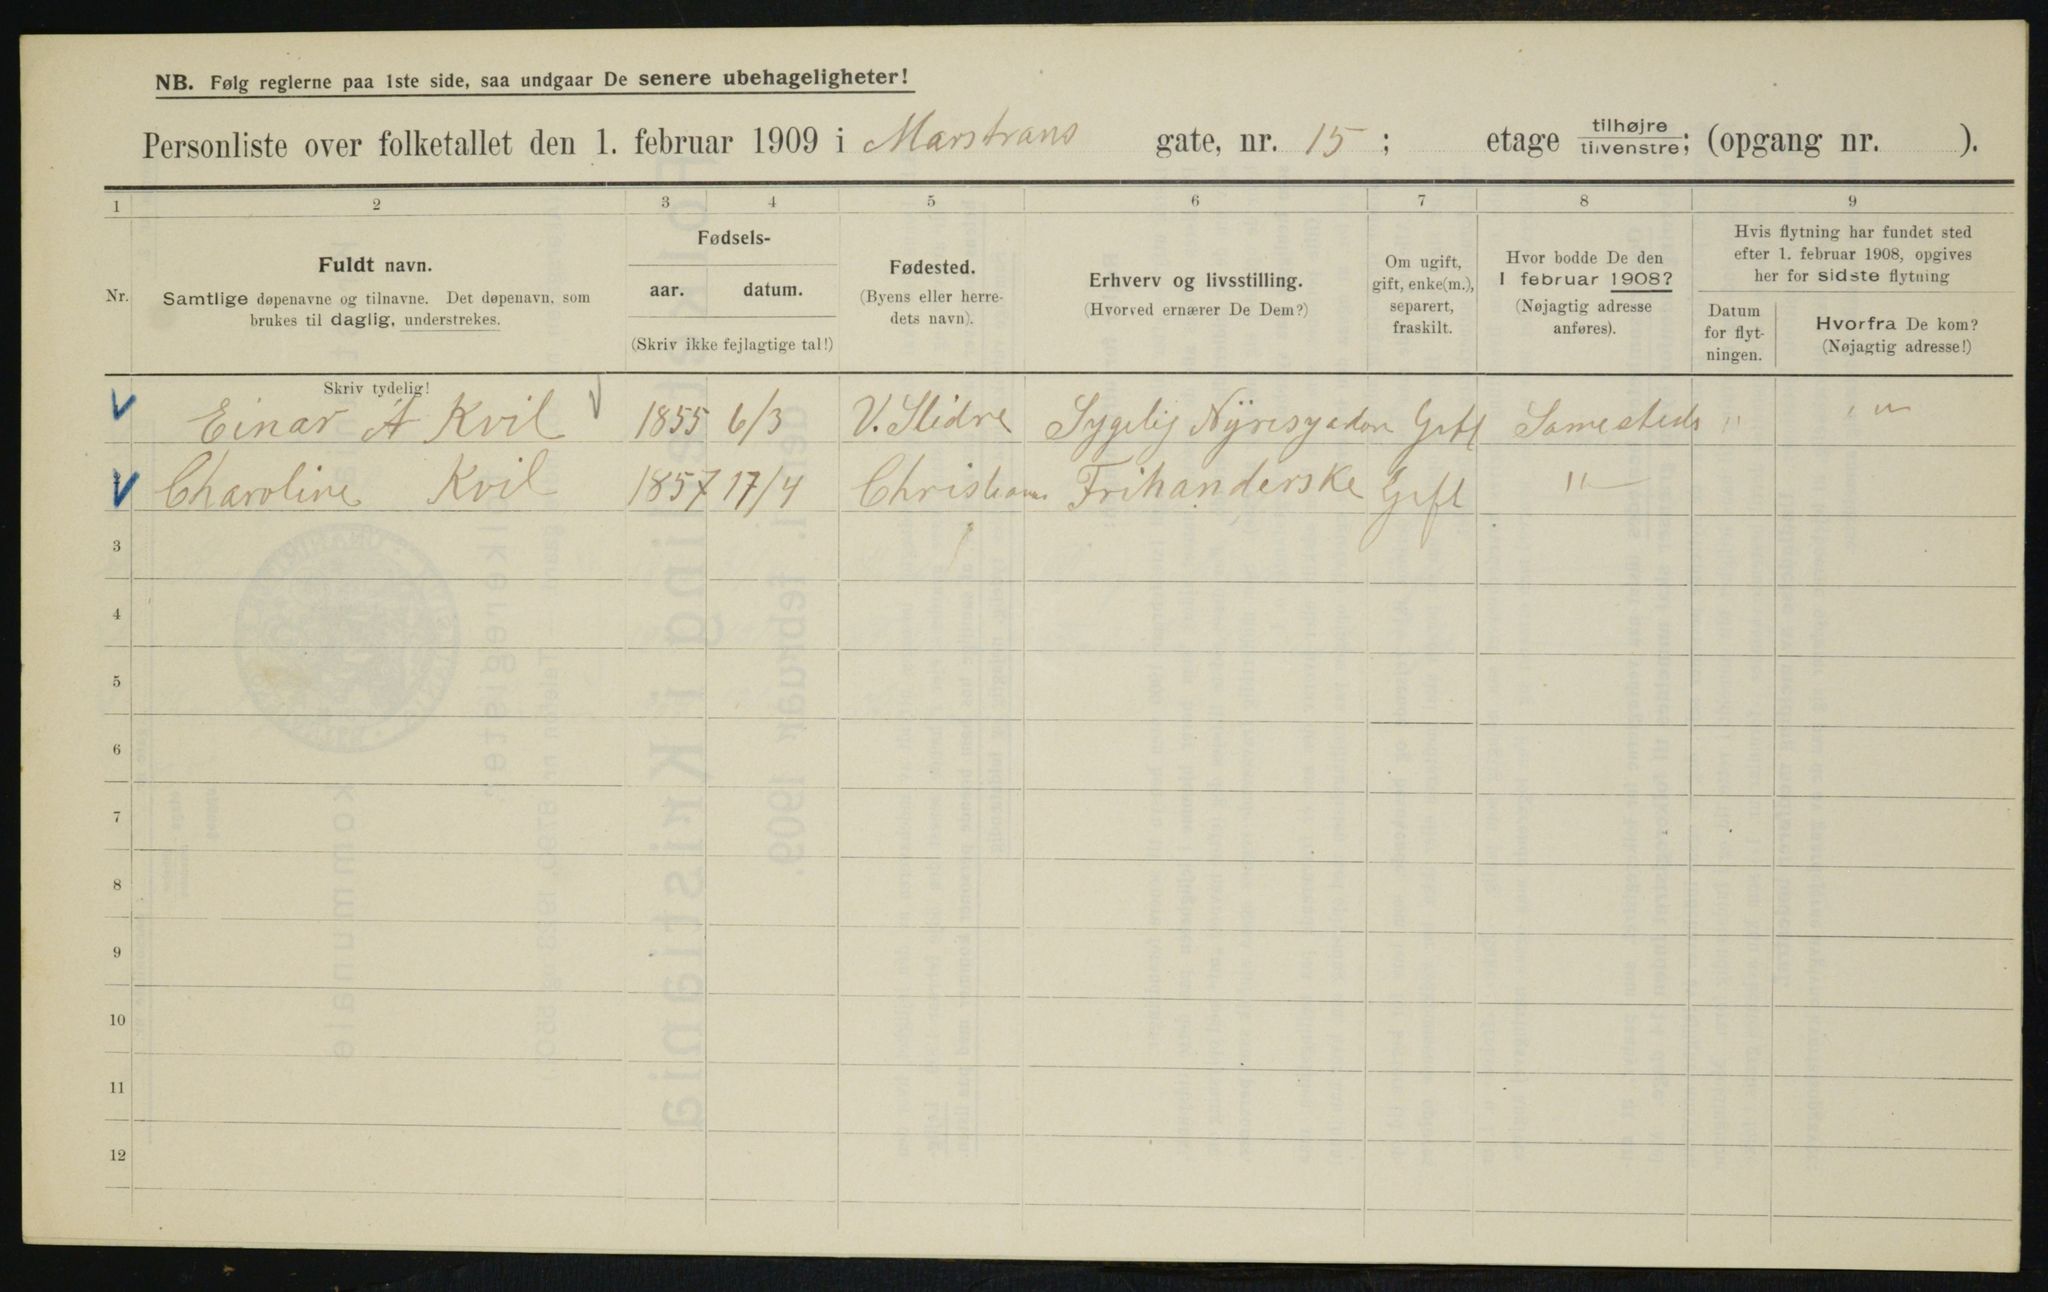 NB. Følg reglerne paa 1ste side, saa undgaar De senere ubehageligheter!
Personliste over folketallet den 1. februar 1909 i Marstrans gate, nr. 15; etage tilhøjre tilvenstre; (opgang nr. ).
1 2 3 4 5 6 7 8 9
Nr.
Fuldt navn.
Samtlige døpenavne og tilnavne. Det døpenavn, som
brukes til daglig, understrekes.
Fødsels-
aar. datum.
(Skriv ikke fejlagtige tal!)
Fødested.
(Byens eller herre-
dets navn).
Erhverv og livsstilling.
(Hvorved ernærer De Dem?)
Om ugift,
gift, enke(m.),
separert,
fraskilt.
Hvor bodde De den
1 februar 1908?
(Nøjagtig adresse
anføres).
Hvis flytning har fundet sted
efter 1. februar 1908, opgives
her for sidste flytning
Datum
for flyt-
ningen.
Hvorfra De kom?
(Nøjagtig adresse!)
Skriv tydelig!
Einar A Kvil 1855 6/3 V. Slidre Sygelig Gift Samesteds " "
Charoline Kvil 1857 17/4 Christiania Frihanderske Gift "
3
4
5
6
7
8
9
10
11
12